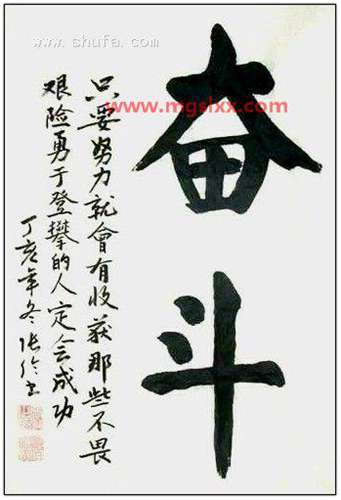 www.shufa.com
www.mgslxx.com
奋斗
只要努力就會有收获那些不畏
艰险勇于登攀的人定会成功
丁亥年冬